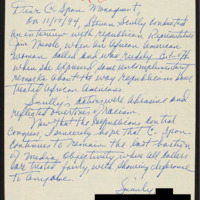 Dear C Span Managment,
On 11/17/94, Susan Scully conducted
an interview with republican Representative
Jim Nussle when an African American
Woman called and was rudely Cut-off
when she expressed some uncomplimentary
remarks about the way Republicans have
treated African americans.
Scully's actions were abrasive and
reflected overtones of racism.
Now that the Republicans control
Congress, I sincerely hope that C. Span
continues to remain the last bastion
of Media Objectivity where all callers
are treated fairly, with showing deference
to anyone.
Sincerely